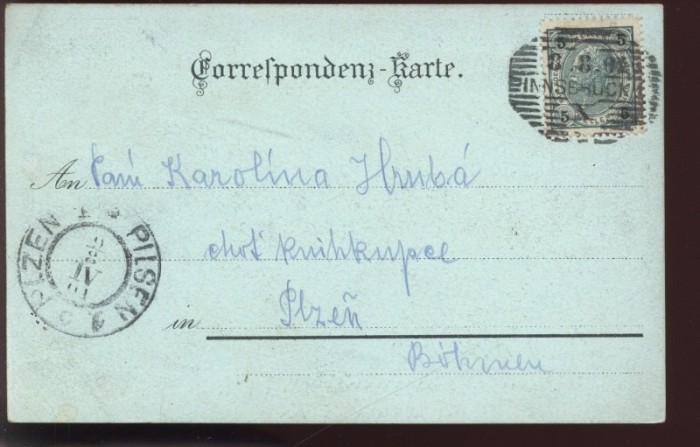 5 5
8.8.0
INNSBRUCK
5 5
Correspondenz-Karte.
An Paní Karolína Hrubá
choť knihkupce
PLZEN PILSEN
in Plzeň
Böhmen